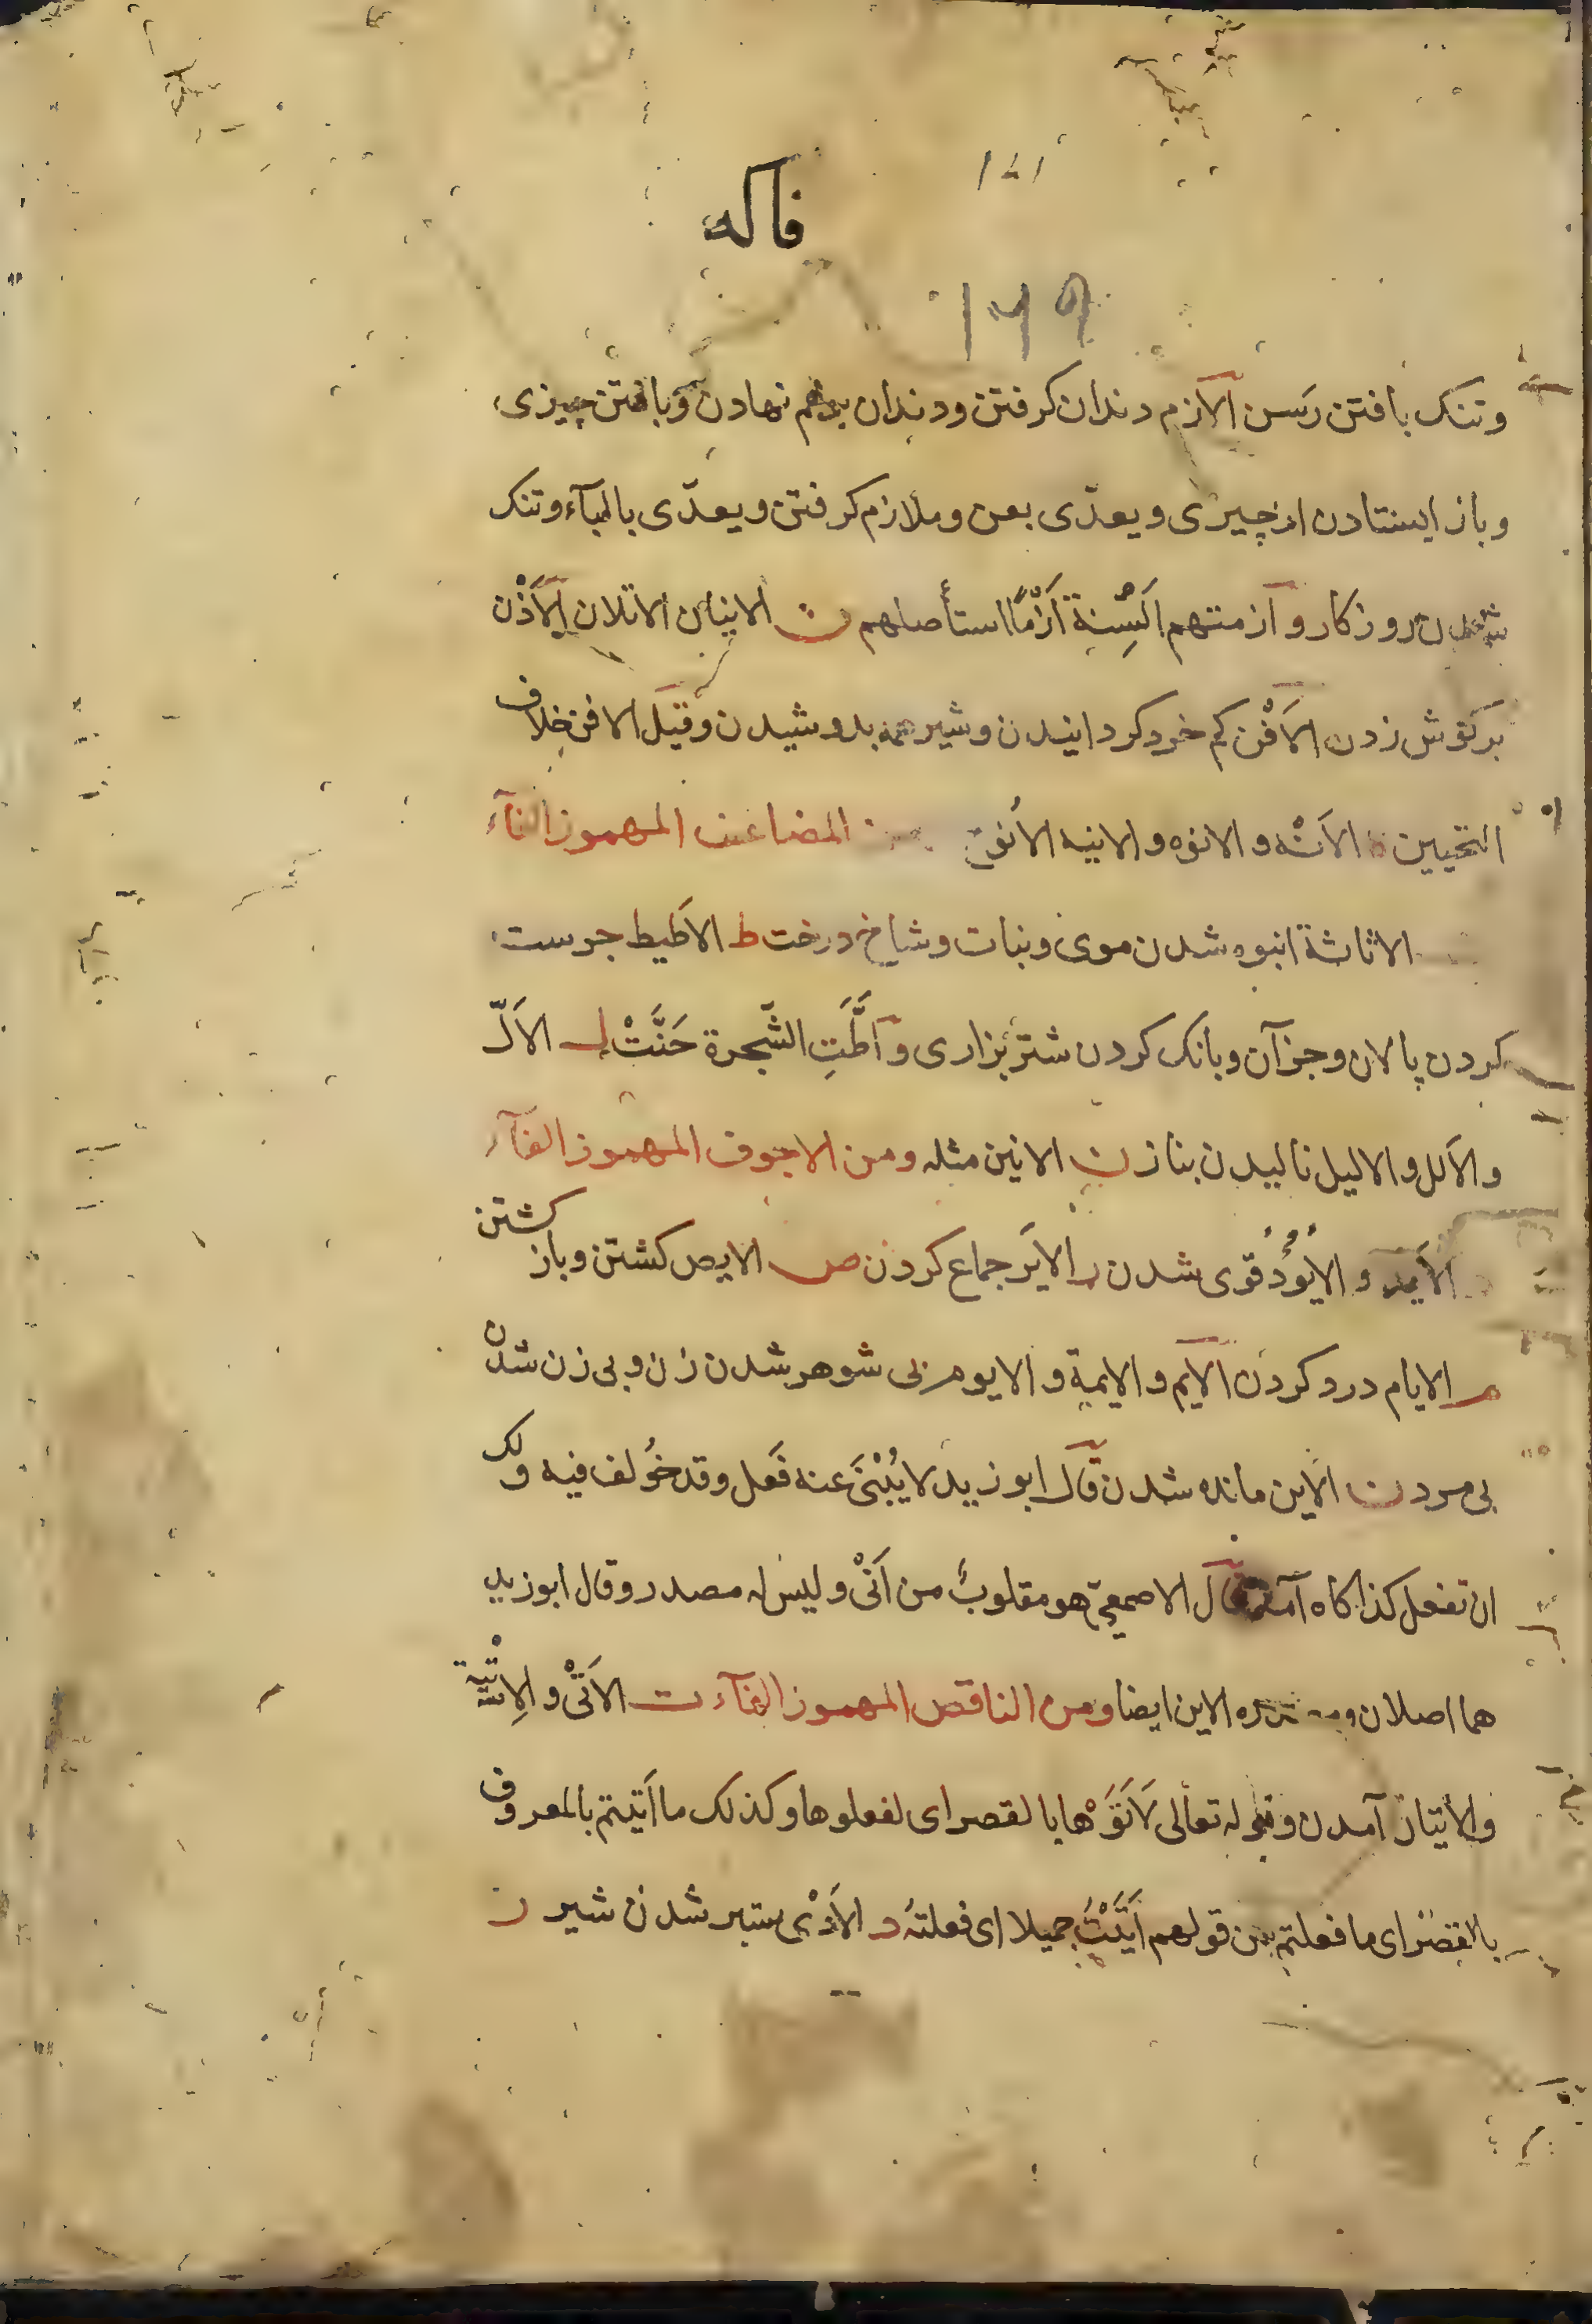 ۱۷۱
فاکه
۱۶۹
وتنک بافتن رَسن الاَزم دندان کرفتن ودندان برهم نهادن وبافتن چیزی
وباز ایستادن از چیزی ویعدّی بعن وملازم کرفتن ویعدّی بالبآء وتنک
شدن روزکار وآزمتهم السِنة اَزْمًا استأصلهم ن الاتلان الاَذْن
برکوش زدن الاَفْن کم خرد کردانیدن وشیر همه بدوشیدن وقیل الافن خلاف
التحیین ه الاَنْه والانوه والانیه الاُنوح المضاعف المهموز الفآء
الاثاثة انبوه شدن موی ونبات وشاخ درخت ط الاَطیط جرست
کردن پالان وجز آن وبانک کردن شتر بزاری وآطَّتِ الشّجرة حَنَّتْ ل الاَلّ
والاَلل والالیل نالیدن بناز ن الانین مثله ومن الاجوف المهموز الفآء
د الاَید والاُیوُدُ قوی شدن ر الایَر جماع کردن ص الایص کشتن وباز کشتن
م الایام درود کردن الاَیم والایمة والایوم بی شوهر شدن زن وبی زن شدن
بی مرد ن الاَین مانده شدن قال ابو زید لا یُبْنَی عنه فَعل وقد خُولف فیه ولک
ان تفعل کذا قال الاصمعیّ هو مقلوبٌ من اَنَیْ ولیس له مصدر وقال ابو زید
هما اصلان الاین ایضا ومن الناقص المهموز الفآء ت الاَتْیْ والاِتْیَة
والاتیان آمدن وقوله تعالی لاَتَوْهَا بالقصر ای لفعلوها وکذلک ما اَتیتم بالمعروف
بالقصر ای ما فعلتم من قولهم اَتَیْتُ جمیلا ای فعلتهُ د الاَدْی ستبر شدن شیر ر